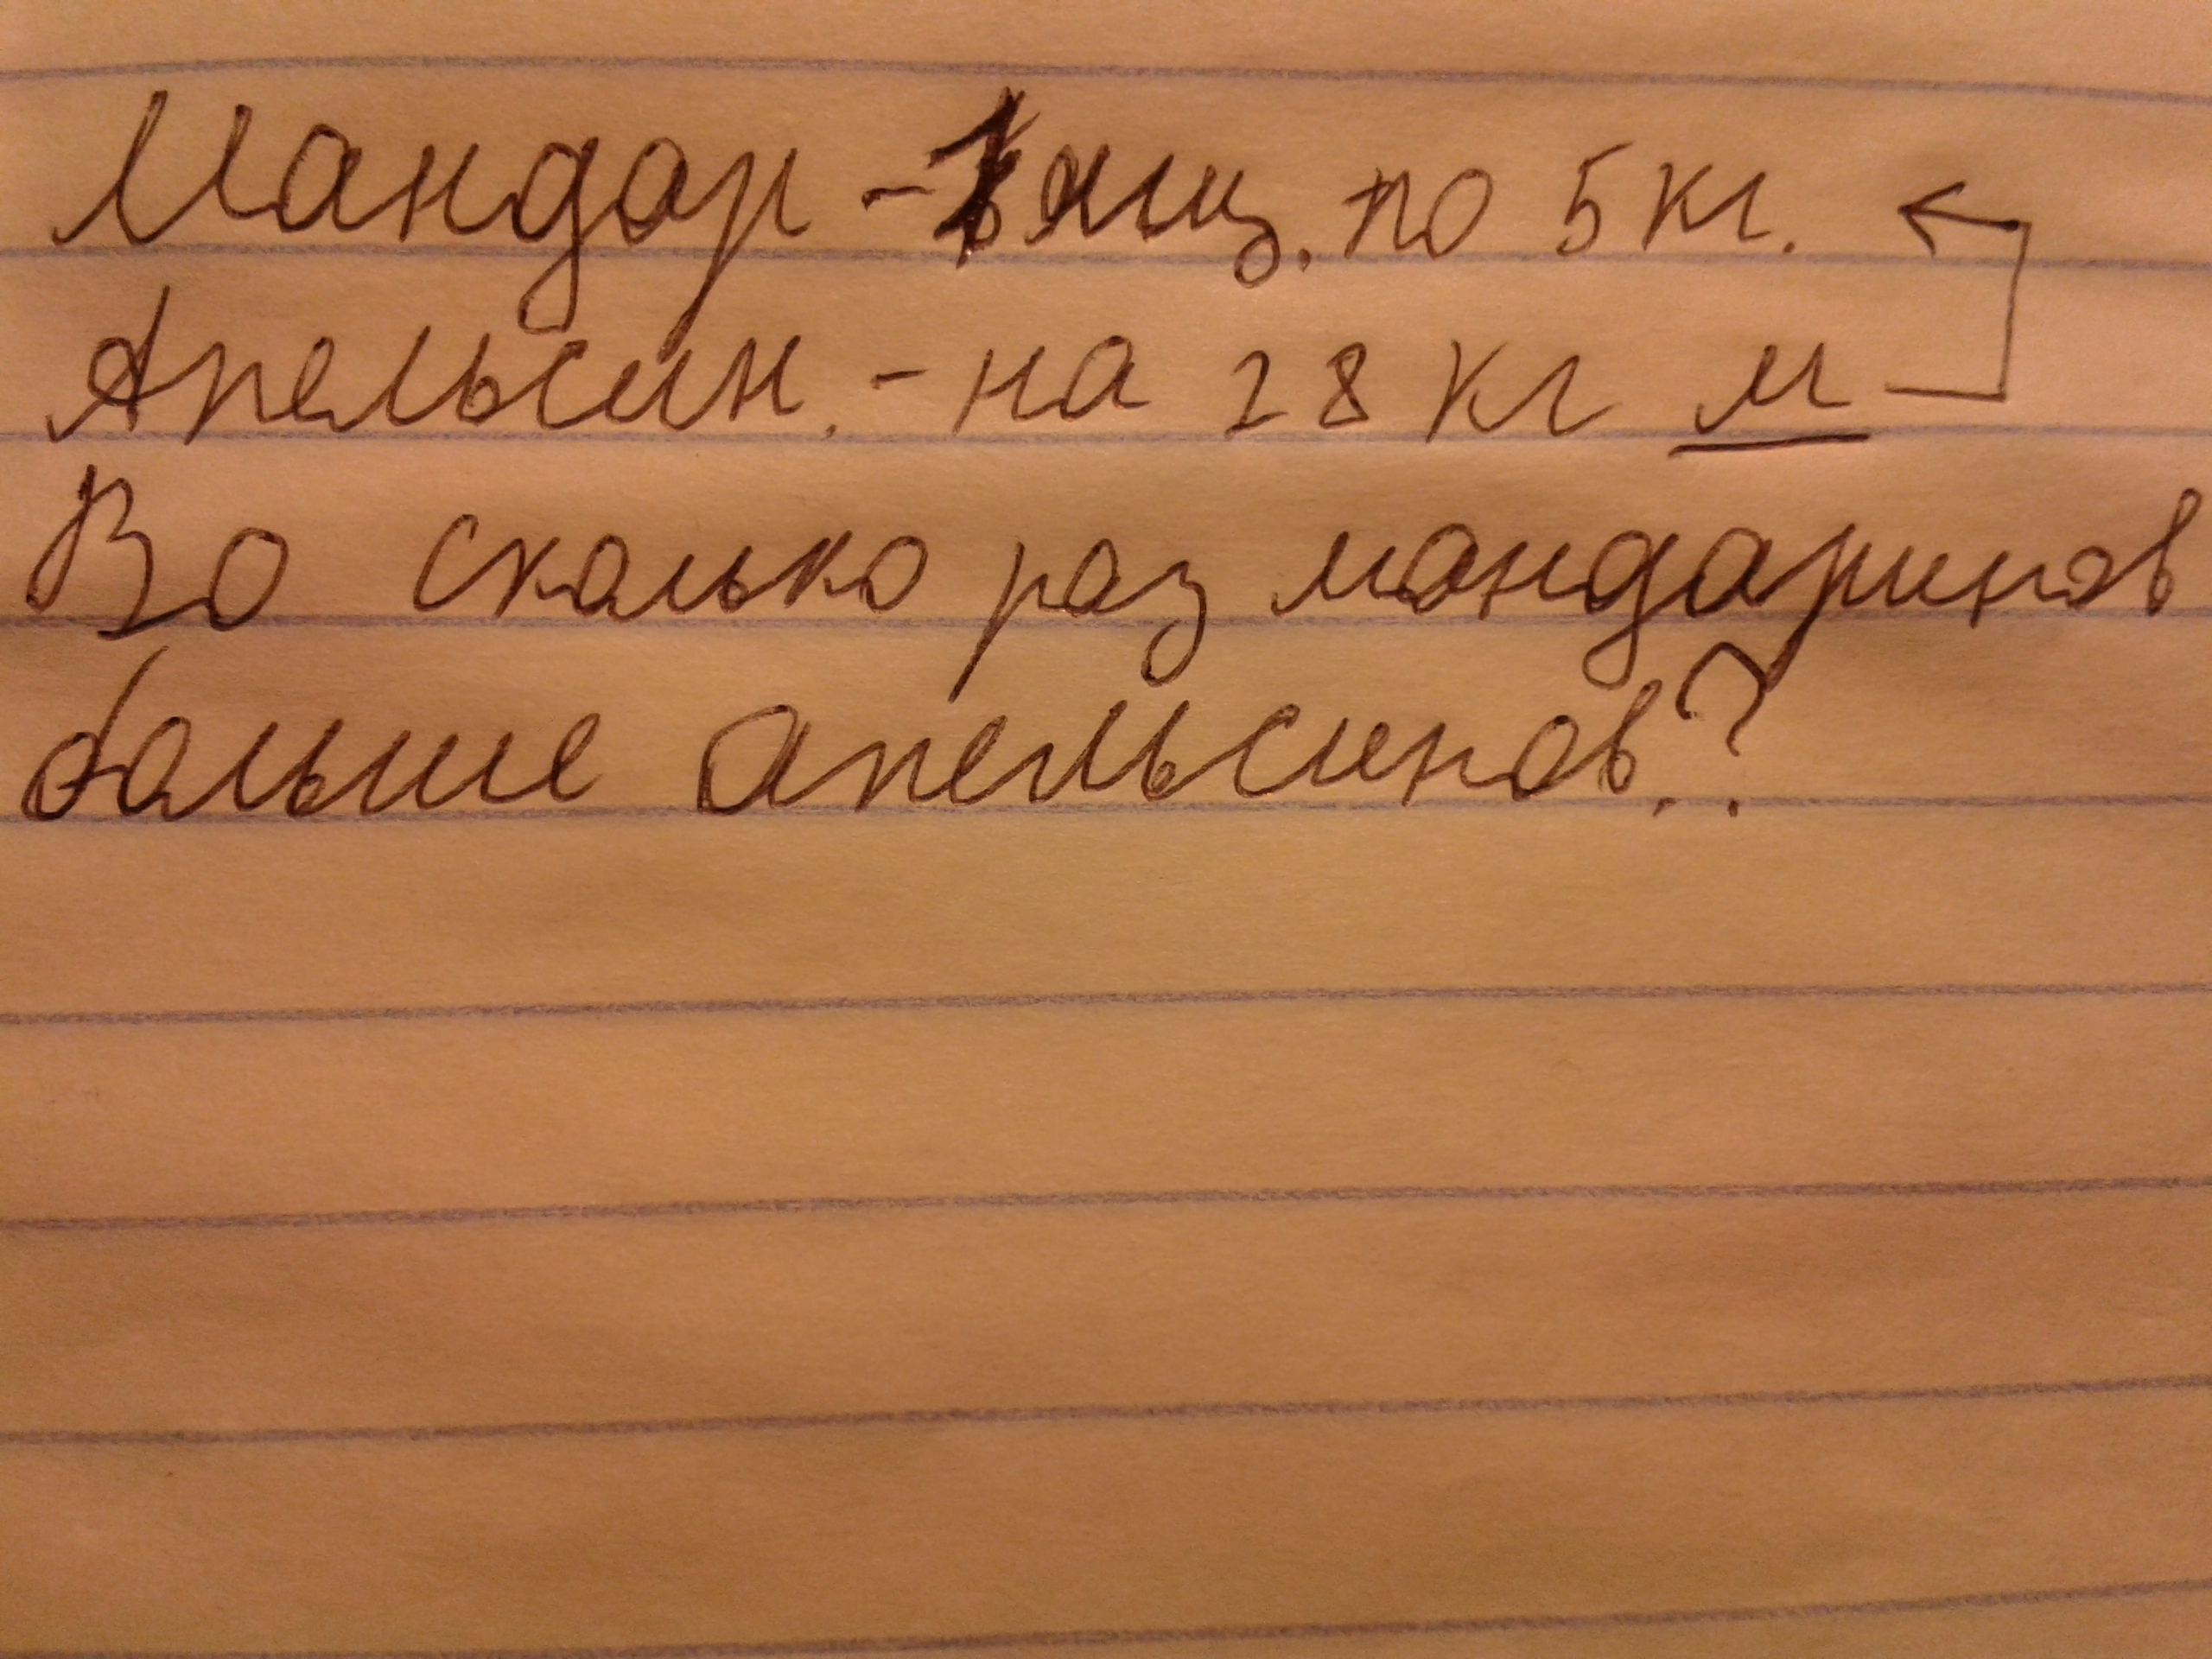 Мандар - ящ. по 5 кг.
Апельсин. - на 28 кг м
Во сколько раз мандаринов
больше апельсинов.?